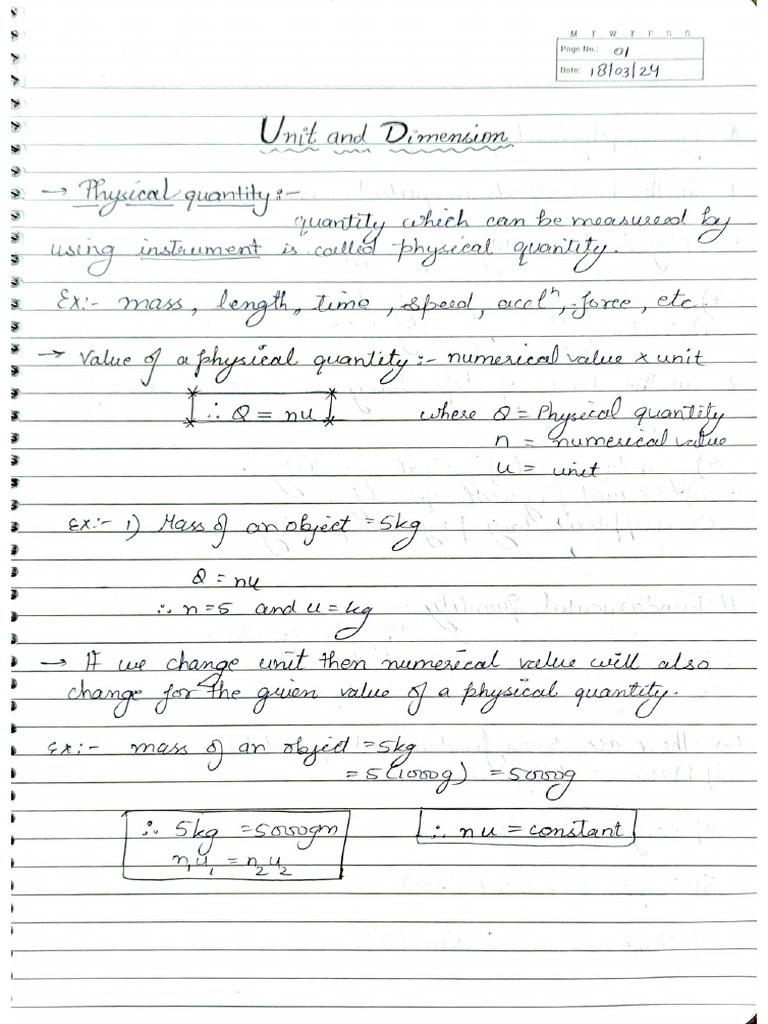 M T W T F S S
Page No.: 01
Date: 18/03/24
Unit and Dimension
→ Physical quantity :-
quantity which can be measured by
using instrument is called physical quantity.
Ex:- mass, length, time, speed, acclⁿ, force, etc.
→ Value of a physical quantity :- numerical value × unit
∴ Q = nu where Q = Physical quantity
n = numerical value
u = unit
Ex:- 1) Mass of an object = 5kg
Q = nu
∴ n = 5 and u = kg
→ If we change unit then numerical value will also
change for the given value of a physical quantity.
Ex:- mass of an object = 5kg
= 5(1000g) = 5000g
∴ 5kg = 5000gm ∴ nu = constant
n₁u₁ = n₂u₂